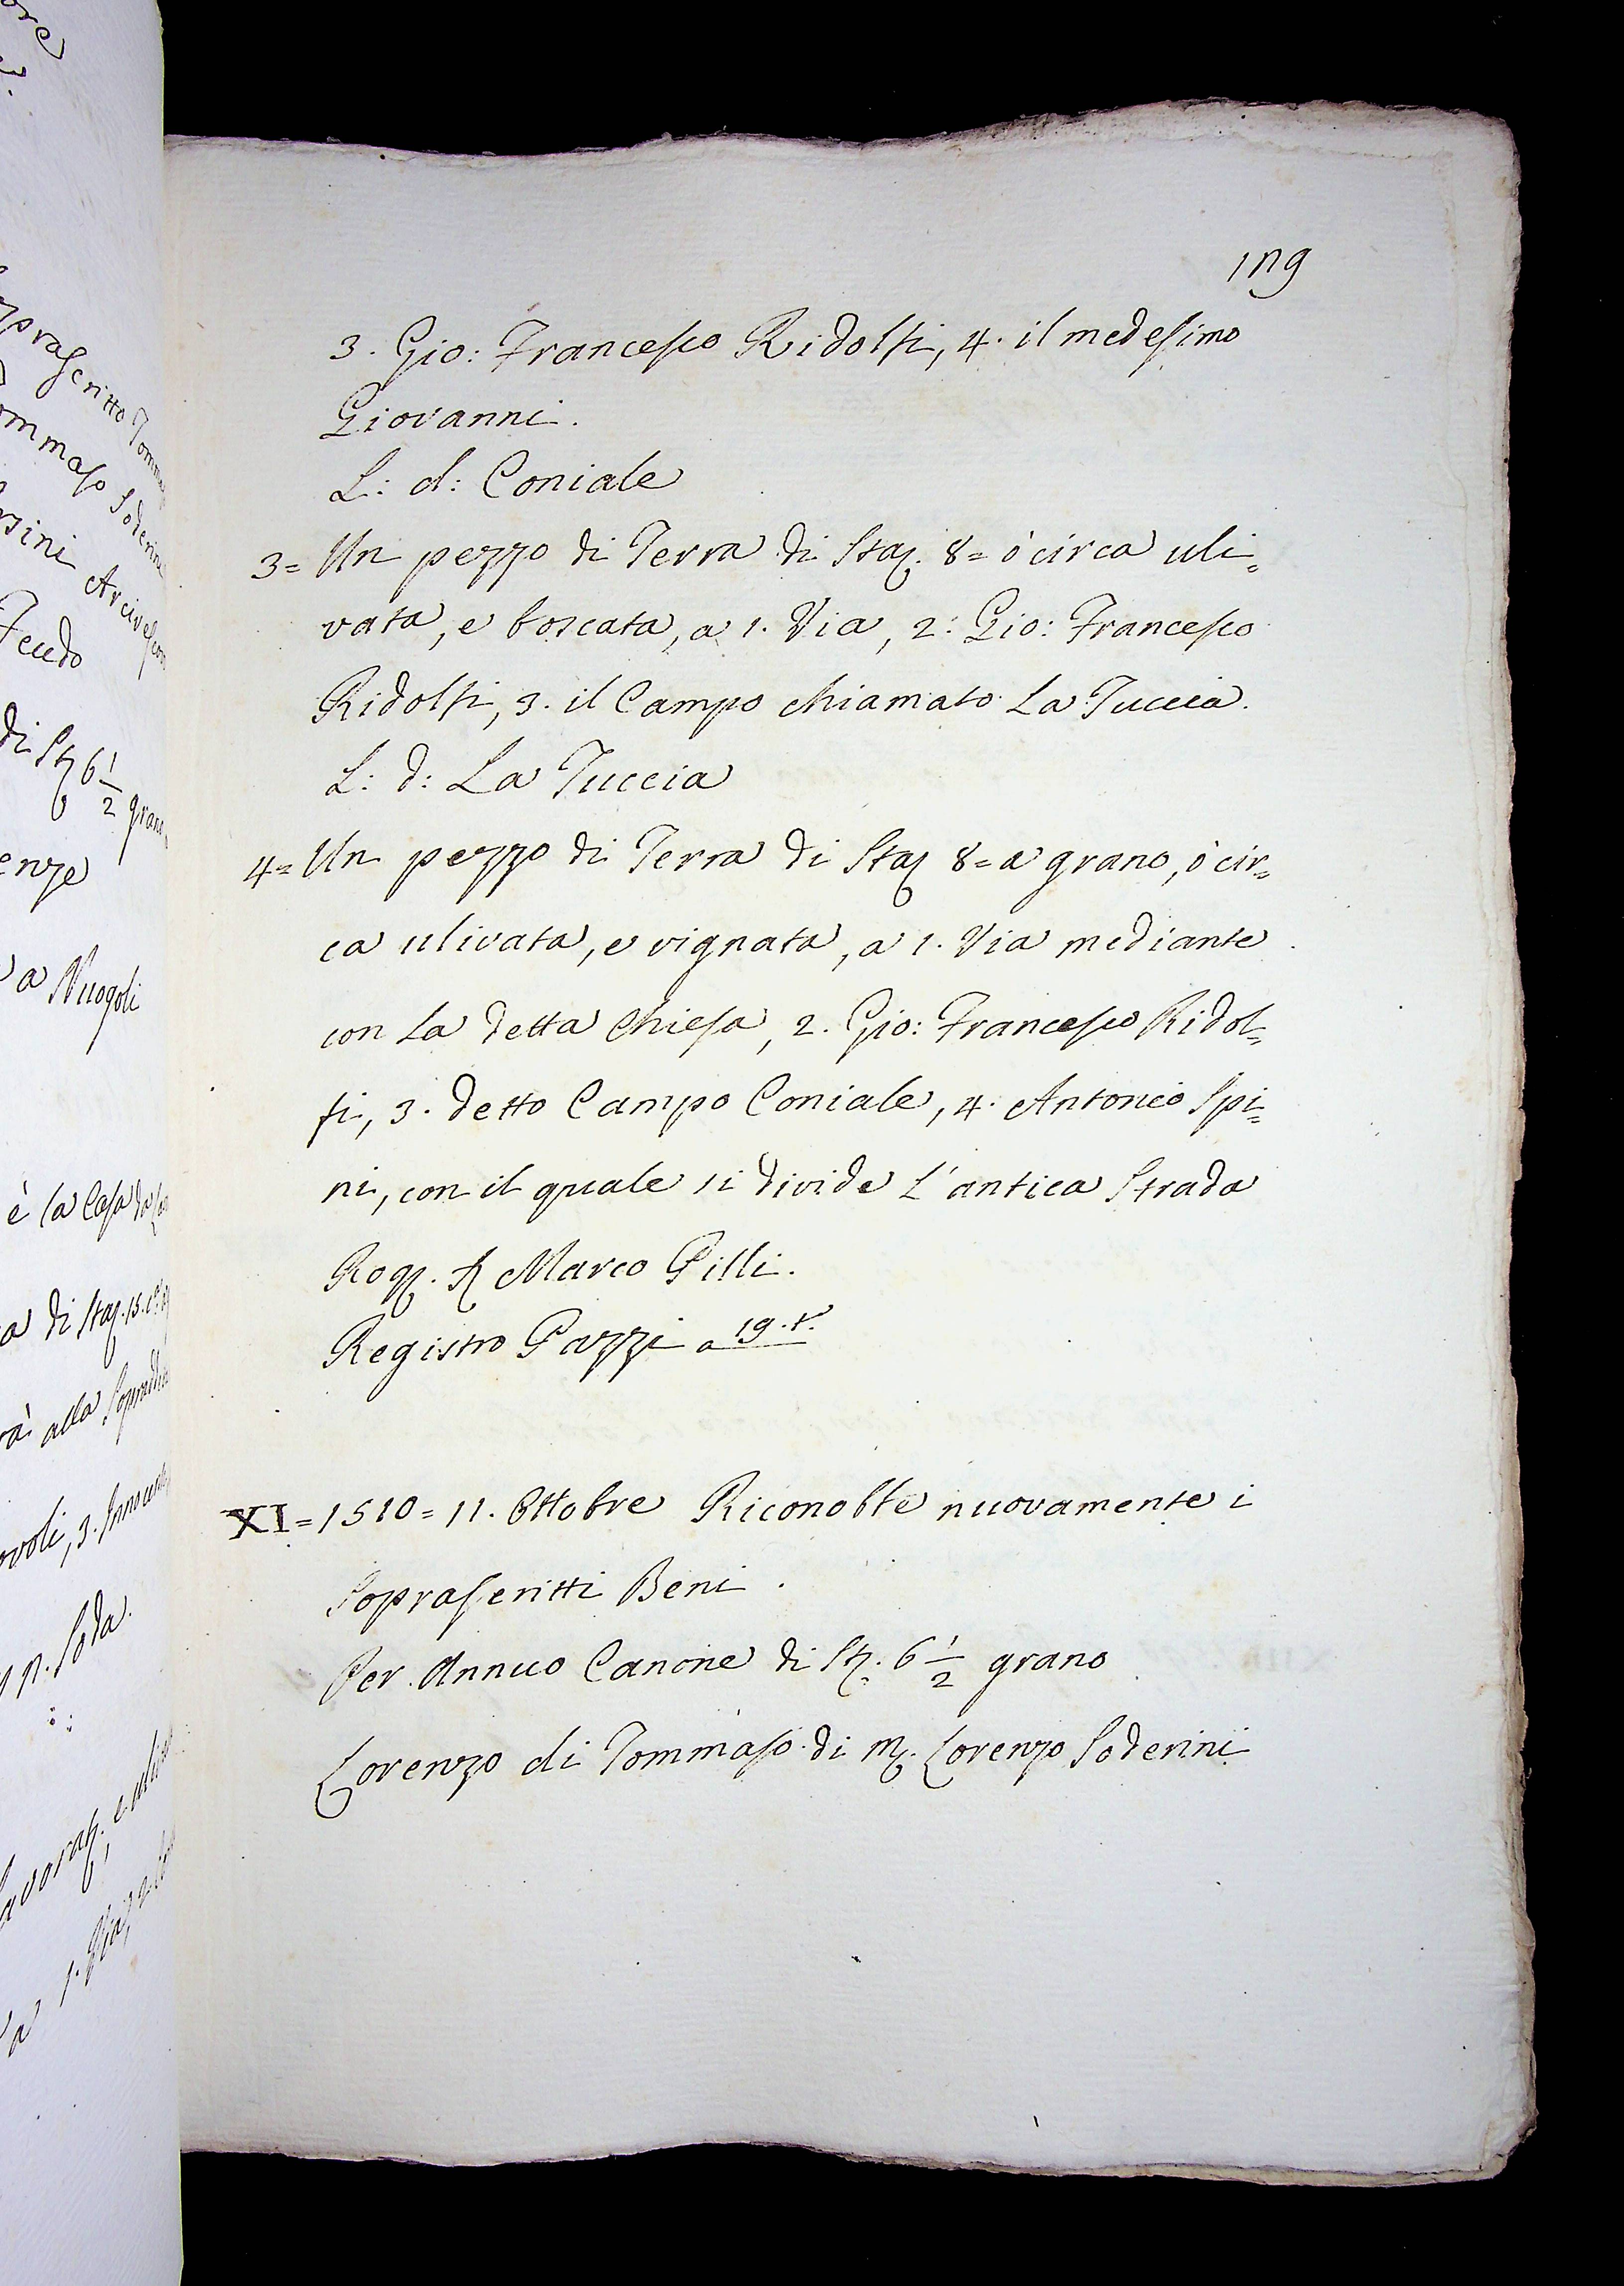 179
3. Gio: Francesco Ridolfi, 4. il medesimo
Giovanni.
L: d: Coniale
3= Un pezzo di Terra di Staj. 8= ò circa uli=
vata, e boscata, a 1. Via, 2: Gio: Francesco
Ridolfi, 3. il Campo chiamato La Tuccia.
L: d: La Tuccia
4= Un pezzo di Terra di Staj 8= a grano, ò cir=
ca ulivata, e vignata, a 1. Via mediante
con La detta Chiesa, 2. Gio: Francesco Ridol=
fi, 3. detto Campo Coniale, 4. Antonio Spi=
ni, con il quale si divide L'antica Strada
Rog. Marco Pilli.
Registro Pazzi a 19. t.
XI= 1510= 11. Ottobre Riconobbe nuovamente i
Soprascritti Beni.
Per Annuo Canone di St. 6 1/2 grano
Lorenzo di Tommaso di M. Lorenzo Soderini
Feudo
di St 6 1/2 grano
a Nuogoli
è la Casa da
a di Staj. 15.
alla
p. Soda.